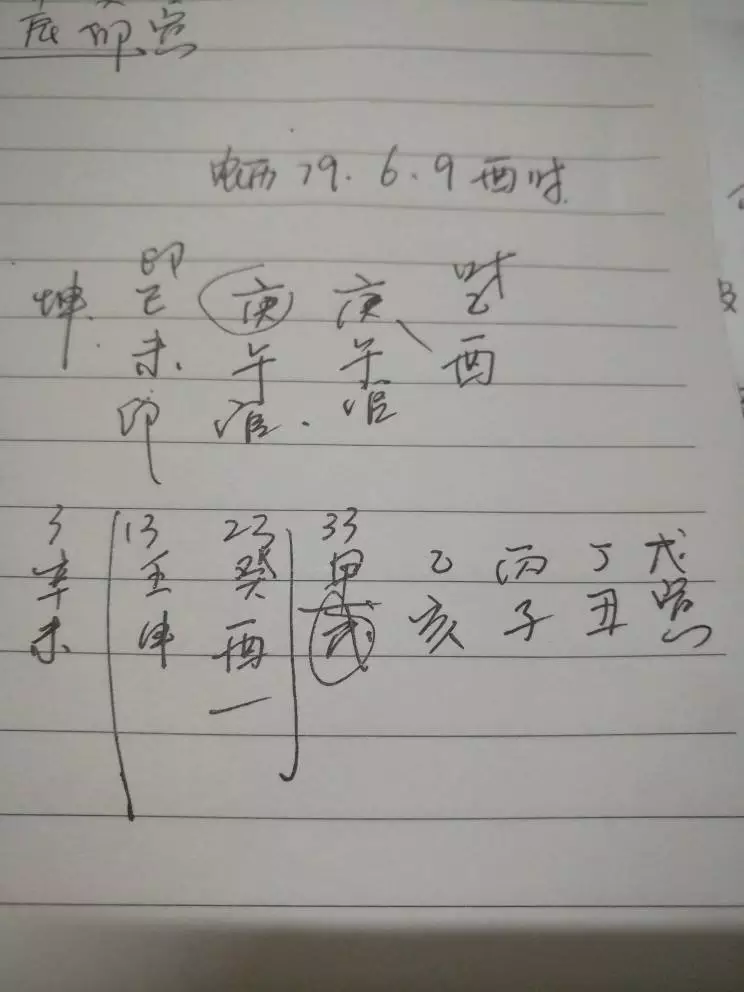 印寅
79.6.9 酉时
印 时
坤 己 庚 庚 乙
未 午 午 酉
印 官. 官
3 13 23 33
辛 壬 癸 甲 乙 丙 丁 戊
未 申 酉 戌 亥 子 丑 寅